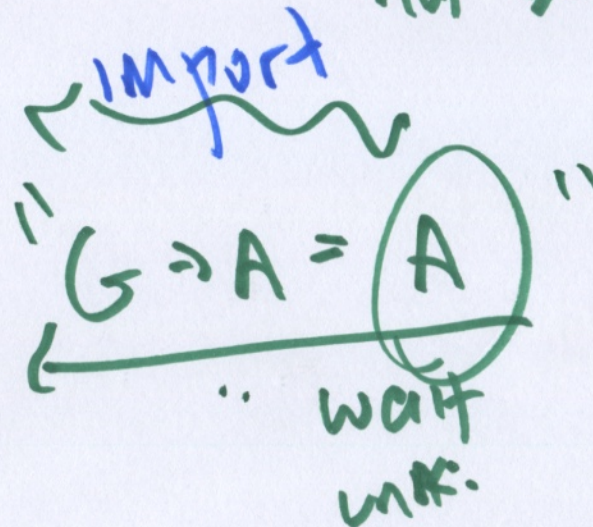 import
"G → A = A"
wait